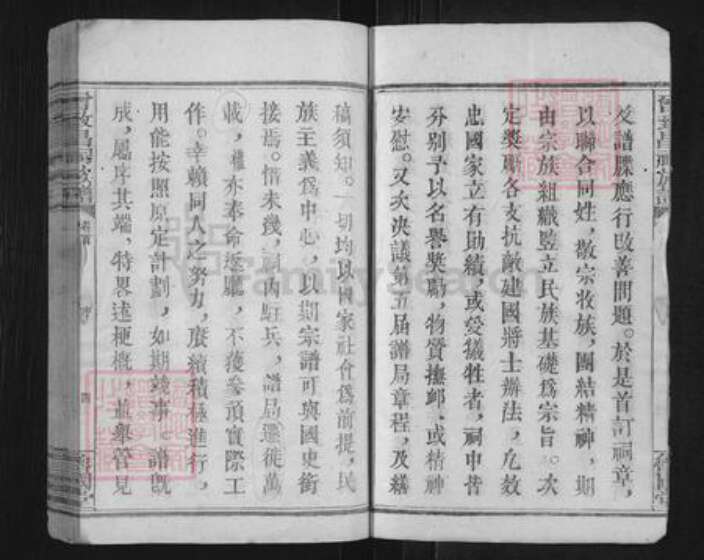 及譜牒應行改善問題。於是首訂祠章，
以聯合同姓，敬宗收族，團結精神，期
由宗族組織豎立民族基礎爲宗旨。次
定奬勵各支抗敵建國將士辦法，凡效
忠國家立有勛績，或受犧牲者，祠中皆
分別予以名譽奬勵，物質撫卹，或精神
安慰。又次決議第五届譜局章程，及繕
稿須知。一切均以國家社會爲前提，民
族主義爲中心，以期宗譜可與國史銜
接焉。惜未幾，祠內駐兵，譜局遷徙萬
載，權亦奉命返廳，不獲參預實際工
作。幸賴同人之努力，賡續積極進行，
用能按照原定計劃，如期竣事。譜旣
成，屬序其端，特畧述梗概，並舉管見
FamilySearch